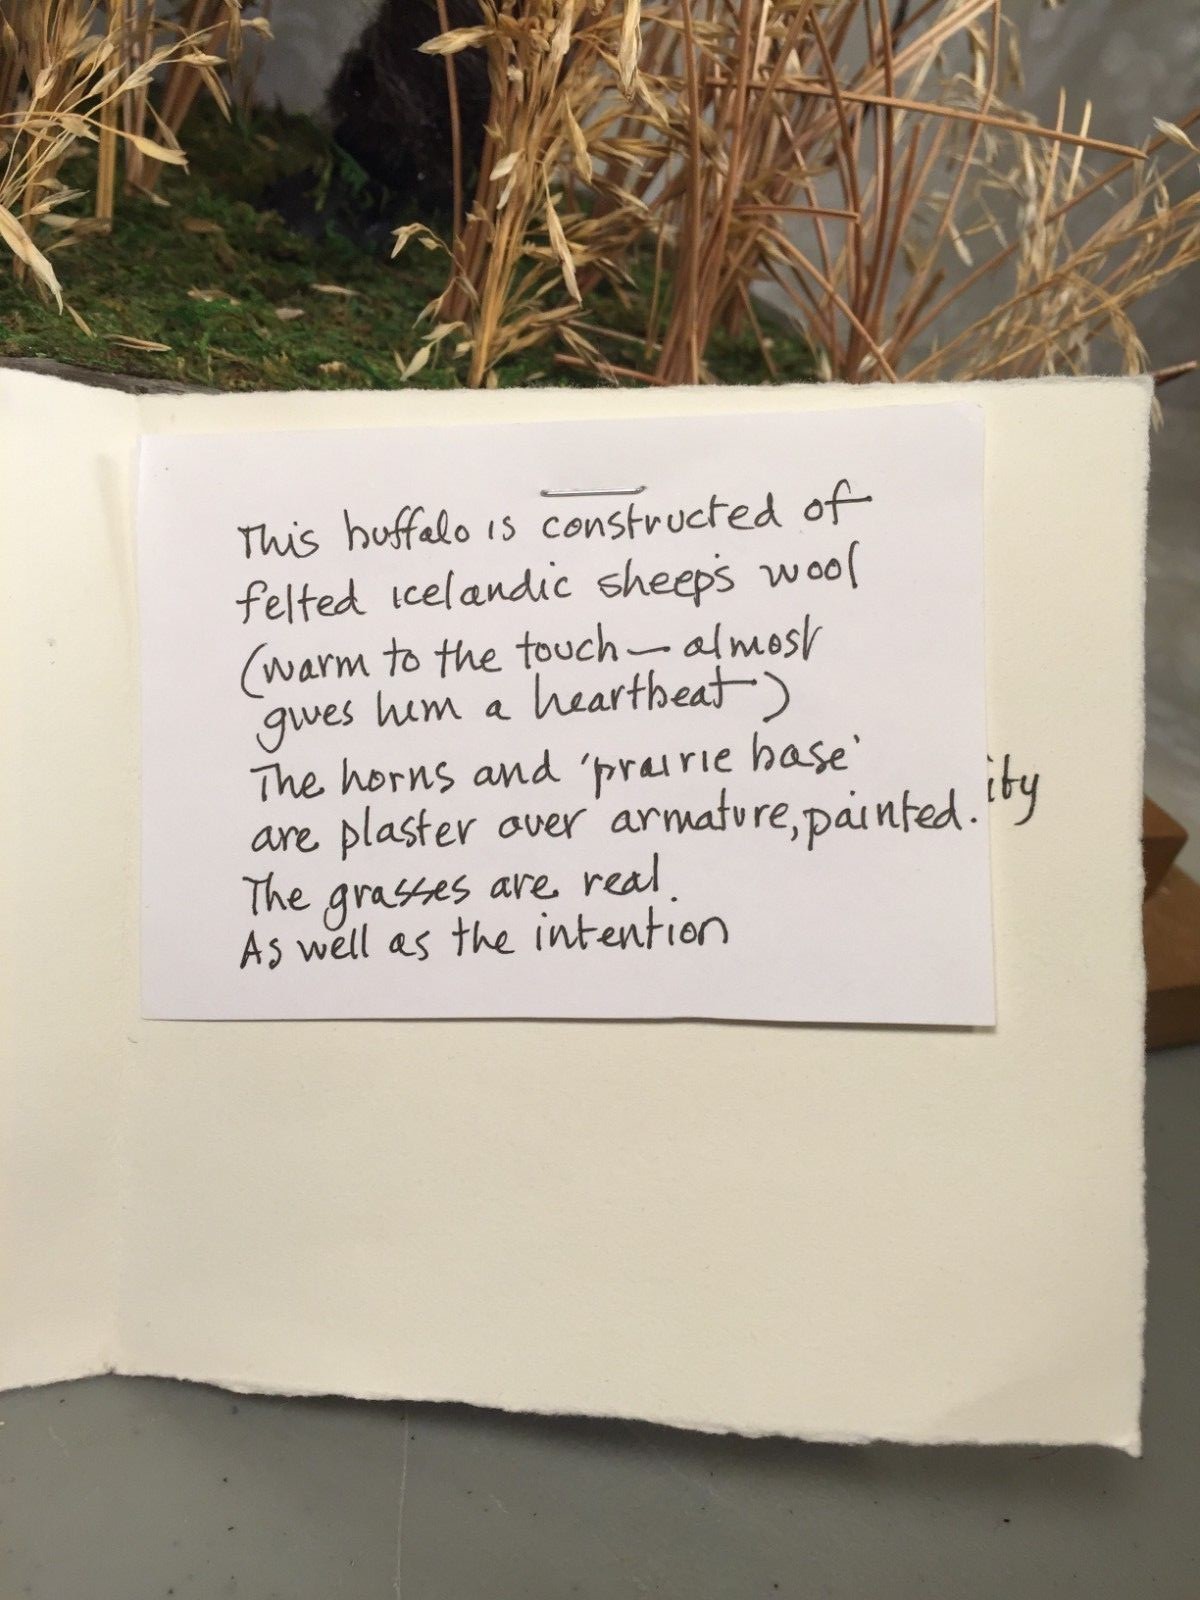 This buffalo is constructed of
felted icelandic sheep's wool
(warm to the touch — almost
gives him a heartbeat)
The horns and 'prairie base'
are plaster over armature, painted.
The grasses are real.
As well as the intention